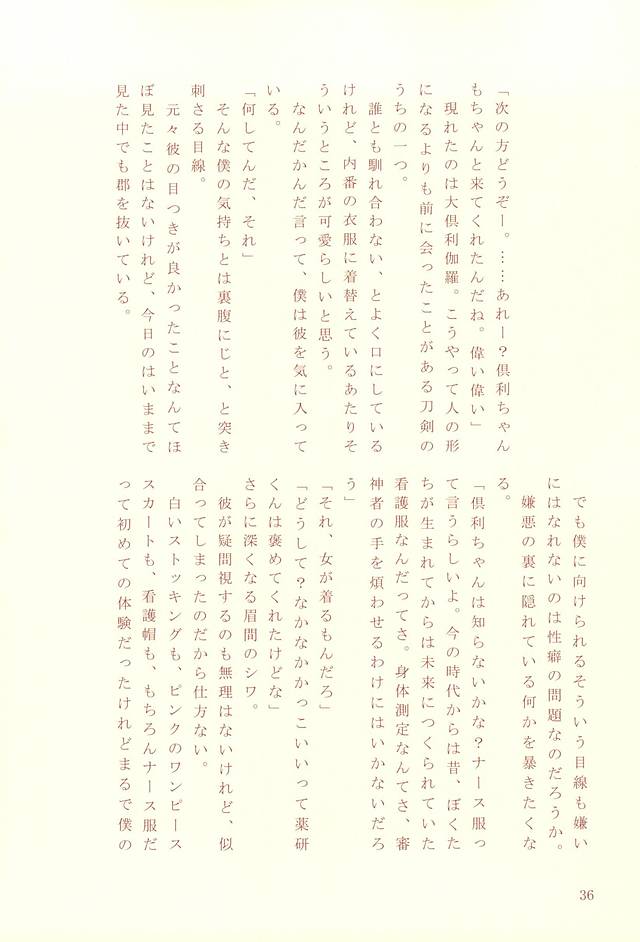 「次の方どうぞー。……あれー？倶利ちゃん
もちゃんと来てくれたんだね。偉い偉い」
現れたのは大倶利伽羅。こうやって人の形
になるよりも前に会ったことがある刀剣の
うちの一つ。
誰とも馴れ合わない、とよく口にしている
けれど、内番の衣服に着替えているあたりそ
ういうところが可愛らしいと思う。
なんだかんだ言って、僕は彼を気に入って
いる。
「何してんだ、それ」
そんな僕の気持ちとは裏腹にじと、と突き
刺さる目線。
元々彼の目つきが良かったことなんてほ
ぼ見たことはないけれど、今日のはいままで
見た中でも郡を抜いている。
でも僕に向けられるそういう目線も嫌い
にはなれないのは性癖の問題なのだろうか。
嫌悪の裏に隠れている何かを暴きたくな
る。
「倶利ちゃんは知らないかな？ナース服っ
て言うらしいよ。今の時代からは昔、ぼくた
ちが生まれてからは未来につくられていた
看護服なんだってさ。身体測定なんてさ、審
神者の手を煩わせるわけにはいかないだろ
う」
「それ、女が着るもんだろ」
「どうして？なかなかかっこいいって薬研
くんは褒めてくれたけどな」
さらに深くなる眉間のシワ。
彼が疑問視するのも無理はないけれど、似
合ってしまったのだから仕方ない。
白いストッキングも、ピンクのワンピース
スカートも、看護帽も、もちろんナース服だ
って初めての体験だったけれどまるで僕の
36